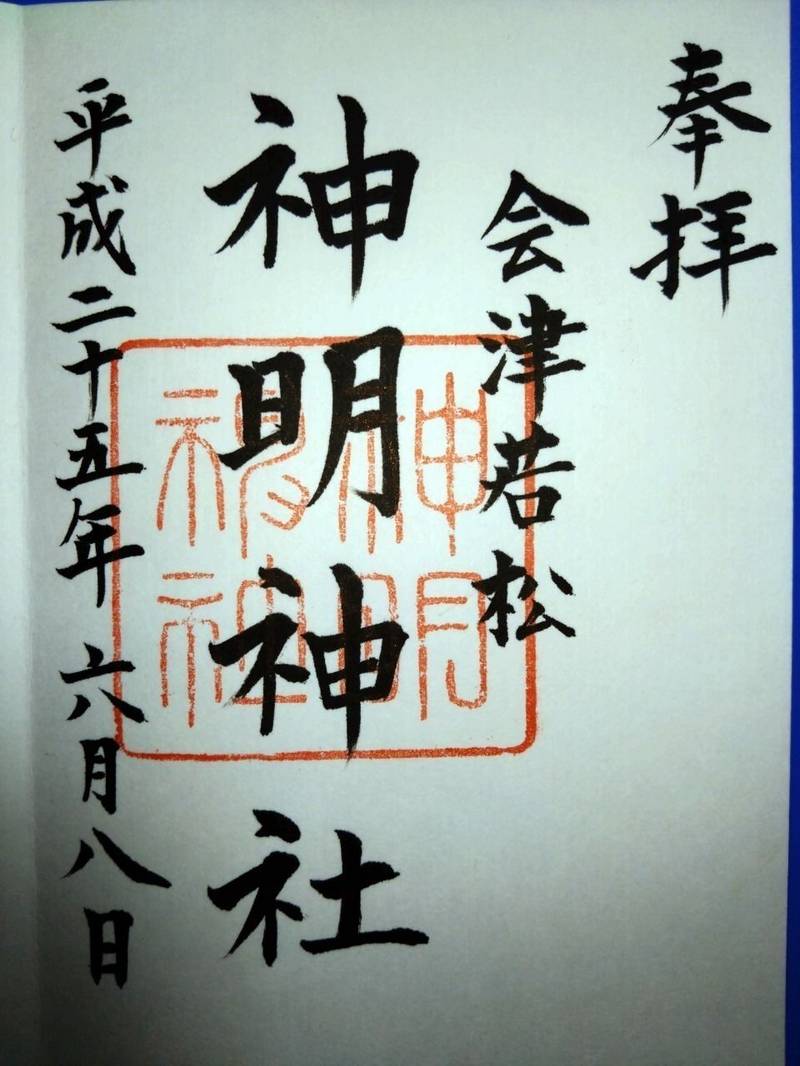 奉拝
会津若松
神明神社
平成二十五年六月八日
神明
神社